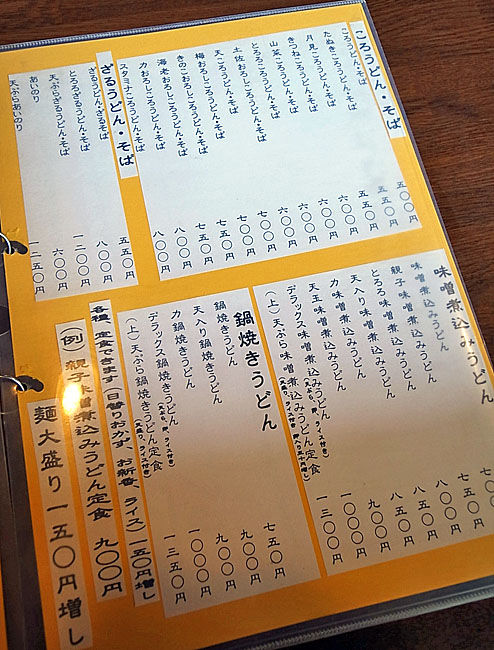 ころうどん・そば
ころうどん・そば 五〇〇円
たぬきころうどん・そば 五五〇円
月見ころうどん・そば 五五〇円
きつねころうどん・そば 六〇〇円
山菜ころうどん・そば 六〇〇円
とろろころうどん・そば 六〇〇円
土佐おろしころうどん・そば 六〇〇円
天ころうどん・そば 七〇〇円
梅おろしころうどん・そば 七〇〇円
きのこおろしころうどん・そば 七五〇円
海老おろしころうどん・そば 七五〇円
力おろしころうどん・そば 八〇〇円
スタミナころうどん・そば 八〇〇円
ざるうどん・そば
ざるうどん・ざるそば 五五〇円
とろろざるうどん・そば 八〇〇円
天ぷらざるうどん・そば 一二〇〇円
あいのり 六〇〇円
天ぷらあいのり 一二五〇円
味噌煮込みうどん
味噌煮込みうどん 七五〇円
親子味噌煮込みうどん 八〇〇円
とろろ味噌煮込みうどん 八〇〇円
天入り味噌煮込みうどん 八五〇円
力味噌煮込みうどん 八五〇円
天玉味噌煮込みうどん 九〇〇円
デラックス味噌煮込みうどん定食 一〇〇〇円
(上)天ぷら味噌煮込みうどん定食 一三〇〇円
鍋焼きうどん
鍋焼きうどん 七五〇円
天入り鍋焼きうどん 九〇〇円
力鍋焼きうどん 九〇〇円
デラックス鍋焼きうどん定食 一〇〇〇円
(上)天ぷら鍋焼きうどん定食 一三五〇円
各種 定食できます(日替りおかず、お新香、ライス)一五〇円増し
(例)親子味噌煮込みうどん定食 九〇〇円
麺大盛り一五〇円増し